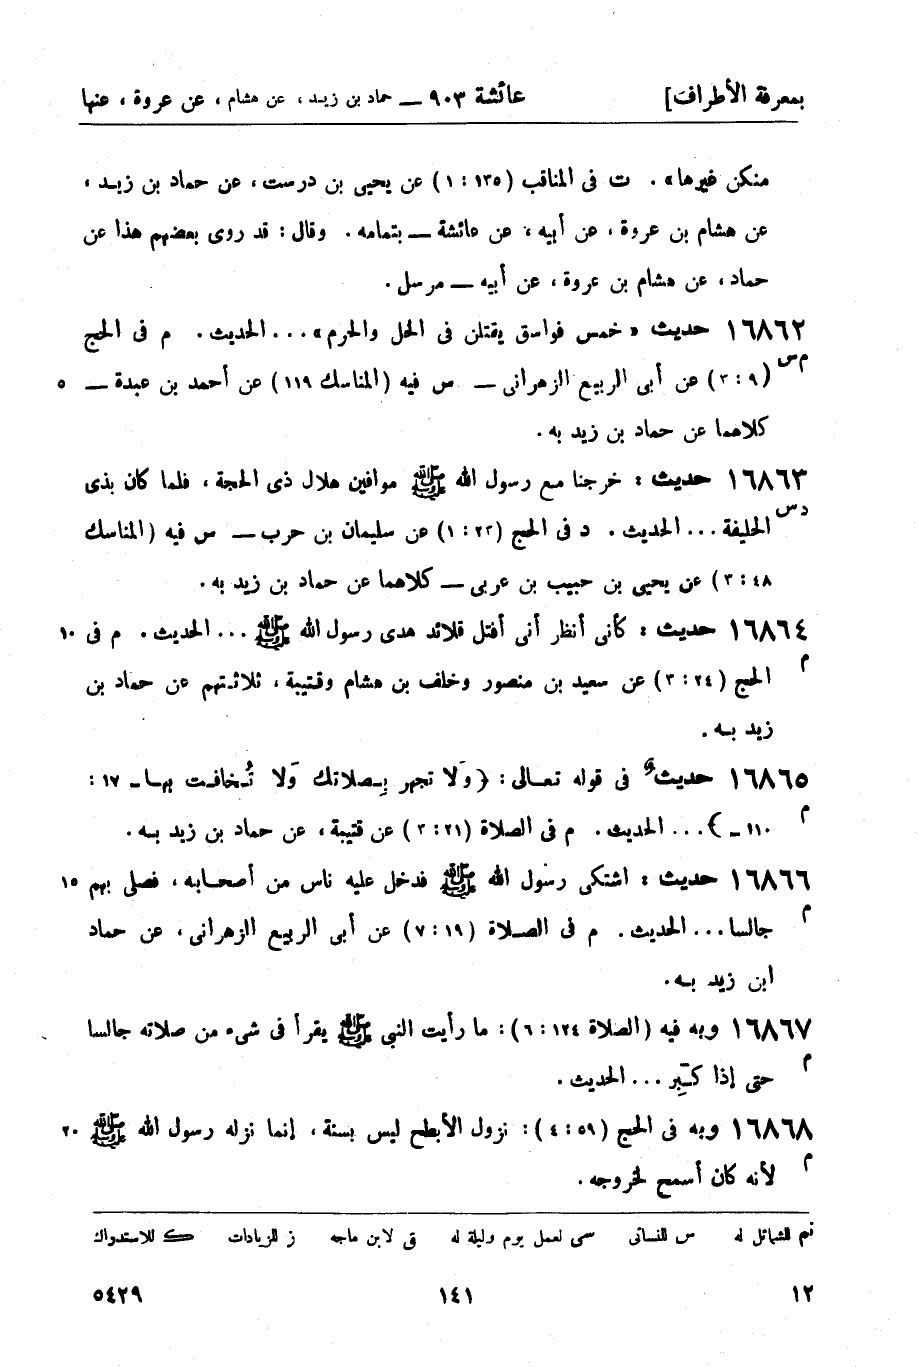 بمعرفة الأطراف] عائشة ٩٠٣ — حماد بن زيد، عن هشام، عن عروة، عنها
منكن غيرها». ت فى المناقب (١٣٥ : ١) عن يحيى بن درست، عن حماد بن زيد،
عن هشام بن عروة، عن أبيه، عن عائشة — بتمامه. وقال: قد روى بعضهم هذا عن
حماد، عن هشام بن عروة، عن أبيه — مرسل.
١٦٨٦٢ حديث «خمس فواسق يقتلن فى الحل والحرم»... الحديث. م فى الحج
م س (٩ : ٣) عن أبى الربيع الزهرانى — س فيه (المناسك ١١٩) عن أحمد بن عبدة — ٥
كلاهما عن حماد بن زيد به.
١٦٨٦٣ حديث: خرجنا مع رسول الله ﷺ موافين هلال ذى الحجة، فلما كان بذى
د س الحليفة... الحديث. د فى الحج (٢٣ : ١) عن سليمان بن حرب — س فيه (المناسك
٤٨ : ٣) عن يحيى بن حبيب بن عربى — كلاهما عن حماد بن زيد به.
١٦٨٦٤ حديث: كأنى أنظر أنى أفتل قلائد هدى رسول الله ﷺ ... الحديث. م فى ١٠
م الحج (٢٤ : ٣) عن سعيد بن منصور وخلف بن هشام وقتيبة، ثلاثتهم عن حماد بن
زيد به.
١٦٨٦٥ حديث فى قوله تعالى: {وَلا تجهر بِصلاتك وَلا تُخافت بها ـ ١٧ :
م ١١٠ ـ}... الحديث. م فى الصلاة (٢١ : ٢) عن قتيبة، عن حماد بن زيد به.
١٦٨٦٦ حديث: اشتكى رسول الله ﷺ فدخل عليه ناس من أصحابه، فصلى بهم ١٥
م جالسا... الحديث. م فى الصلاة (١٩ : ٧) عن أبى الربيع الزهرانى، عن حماد
ابن زيد به.
١٦٨٦٧ وبه فيه (الصلاة ١٢٤ : ٦): ما رأيت النبى ﷺ يقرأ فى شىء من صلاته جالسا
م حتى إذا كبِّر... الحديث.
١٦٨٦٨ وبه فى الحج (٥٩ : ٤): نزول الأبطح ليس بسنة، إنما نزله رسول الله ﷺ ٢٠
م لأنه كان أسمح لخروجه.
تم للشمائل له س للنسائى سى لعمل يوم وليلة له ق لابن ماجه ز للزيادات ك للاستدراك
١٢ ١٤١ ٥٤٢٩